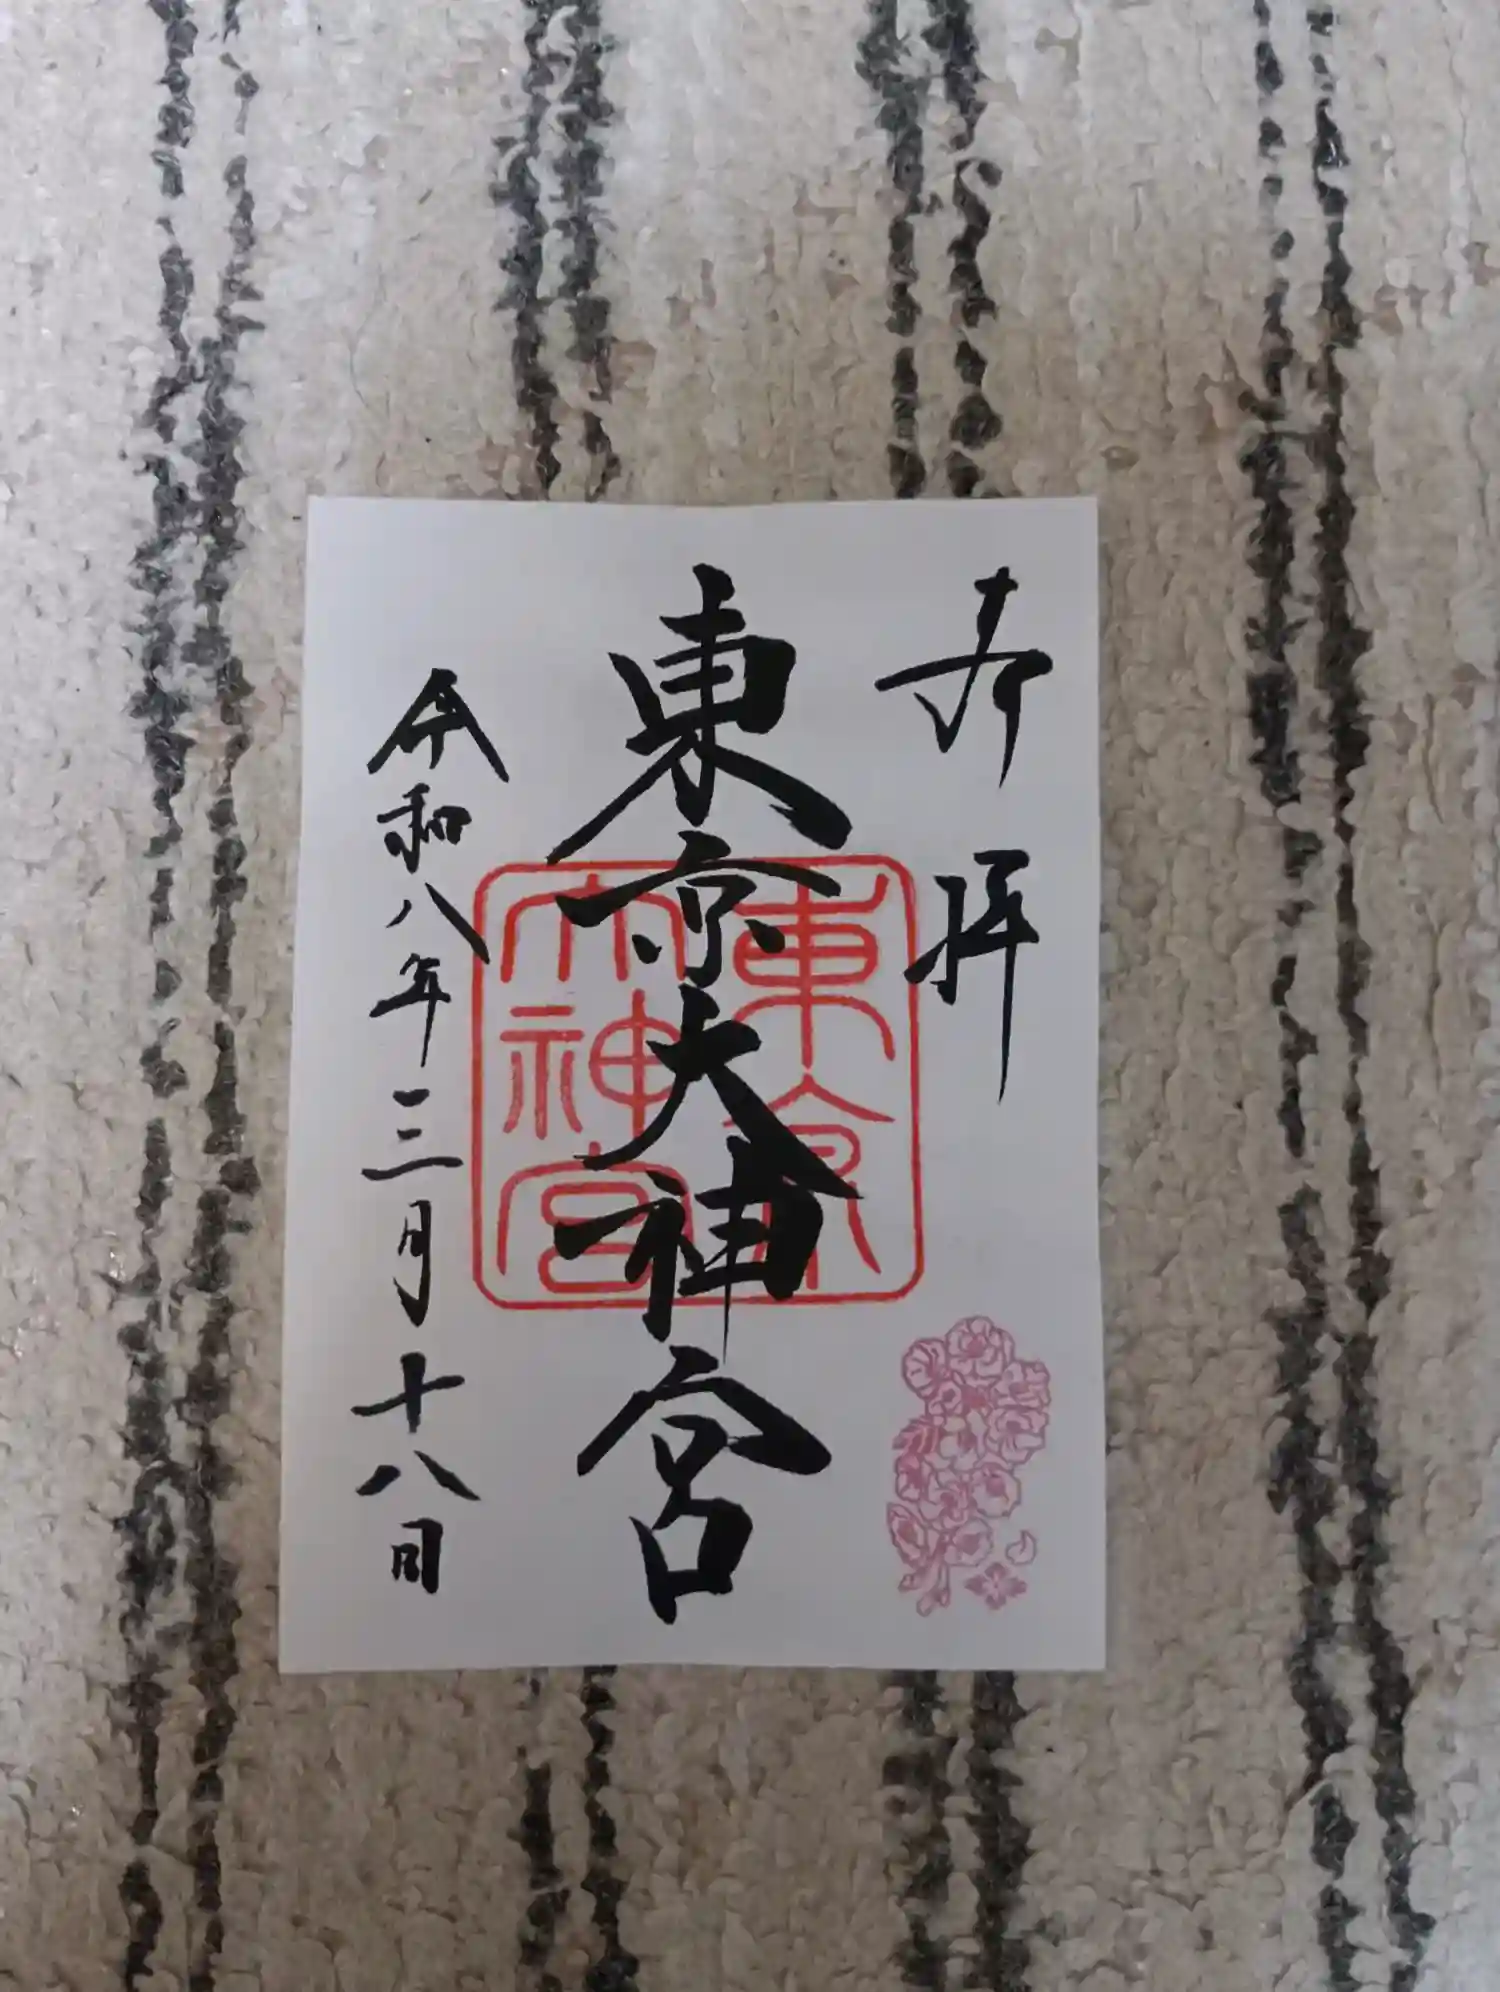 奉拝
東京大神宮
令和八年三月十八日
東京
大神宮